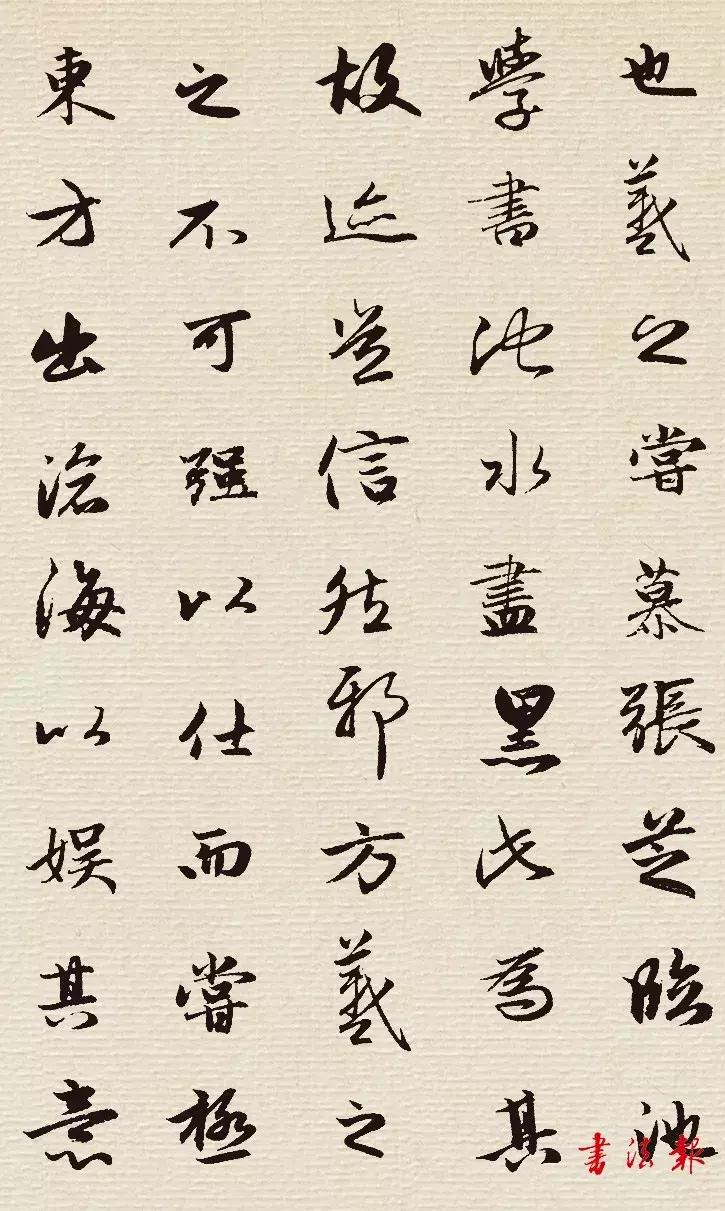 也羲之嘗慕張芝臨池
學書池水盡黑此為其
故迹豈信然邪方羲之
之不可强以仕而嘗極
東方出滄海以娱其意
書法報